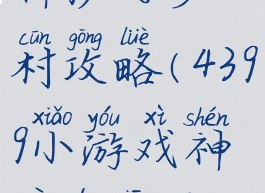 cūn gōng lüè
村攻略(439
xiǎo yóu xì shén
9小游戏神